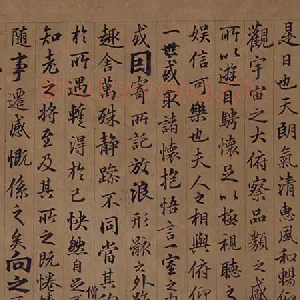 是日也天朗氣清惠風和暢
觀宇宙之大俯察品類之盛
所以遊目騁懷足以極視聽之
娛信可樂也夫人之相與俯仰
一世或取諸懷抱悟言一室之
或因寄所託放浪形骸之外雖
趣舍萬殊靜躁不同當其
於所遇蹔得於己怏然自
僧
知老之將至及其所之既惓情
隨事遷感慨係之矣向之